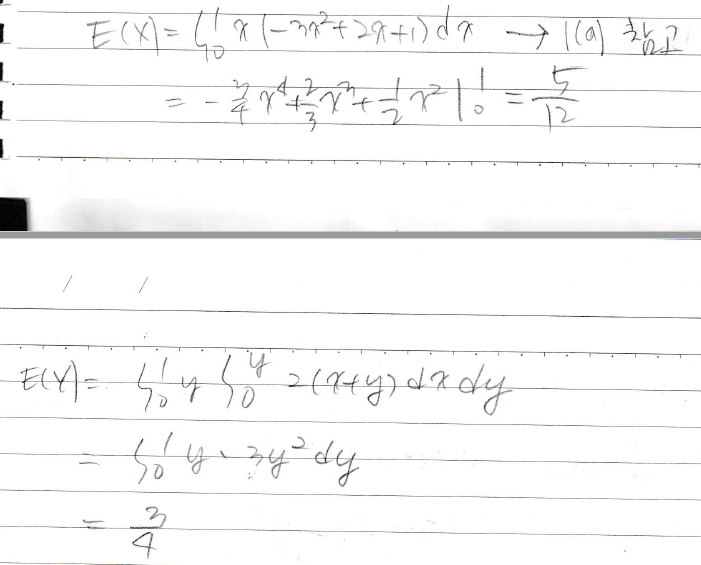 E(X) = ∫₀¹ x (-3x²+2x+1) dx → 1(a) 참고
= -3/4 x⁴ + 2/3 x³ + 1/2 x² |₀¹ = 5/12
E(Y) = ∫₀¹ y ∫₀ʸ 2(x+y) dx dy
= ∫₀¹ y · 3y² dy
= 3/4